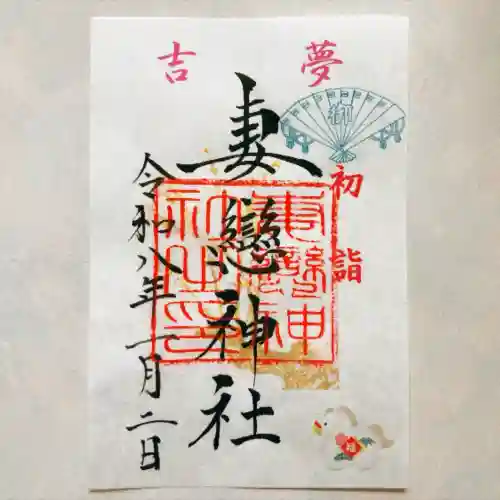 吉夢
初詣
妻戀神社
令和八年一月二日
妻戀神社之印